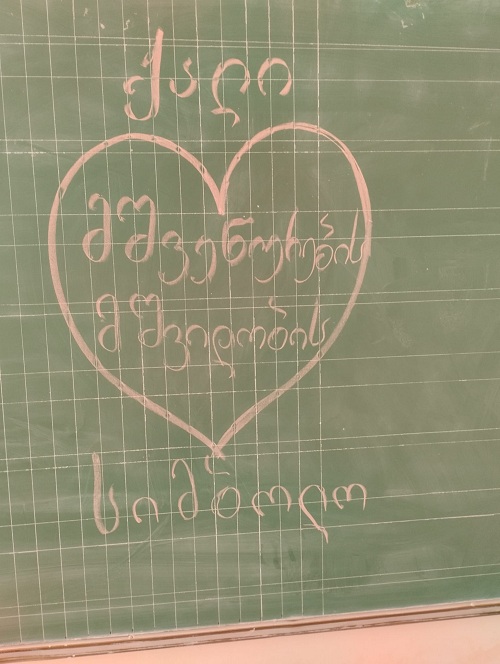 ქალი
მშვენიერების
მშვიდობის
სიმბოლო